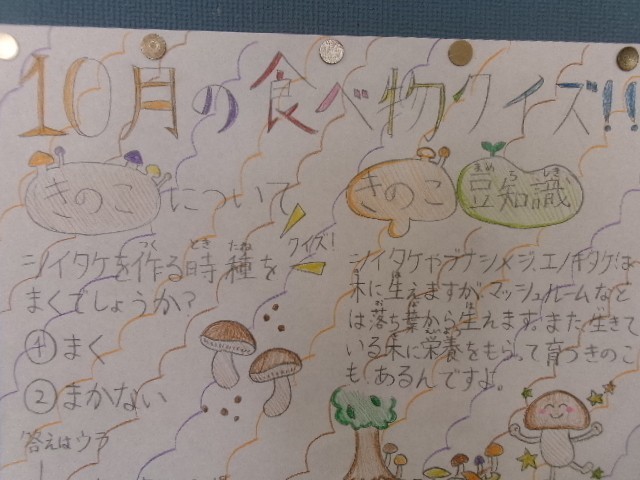 10月の食べ物クイズ!!
きのこについて
クイズ!
シイタケを作る時種を
つく とき たね
まくでしょうか?
①まく
②まかない
答えはウラ
きのこ豆知識
まめ ち しき
シイタケやブナシメジ、エノキタケは
木に生えますが、マッシュルームなど
は落ち葉から生えます。また生きて
いる木に栄養をもらって育つきのこ
も、あるんですよ。